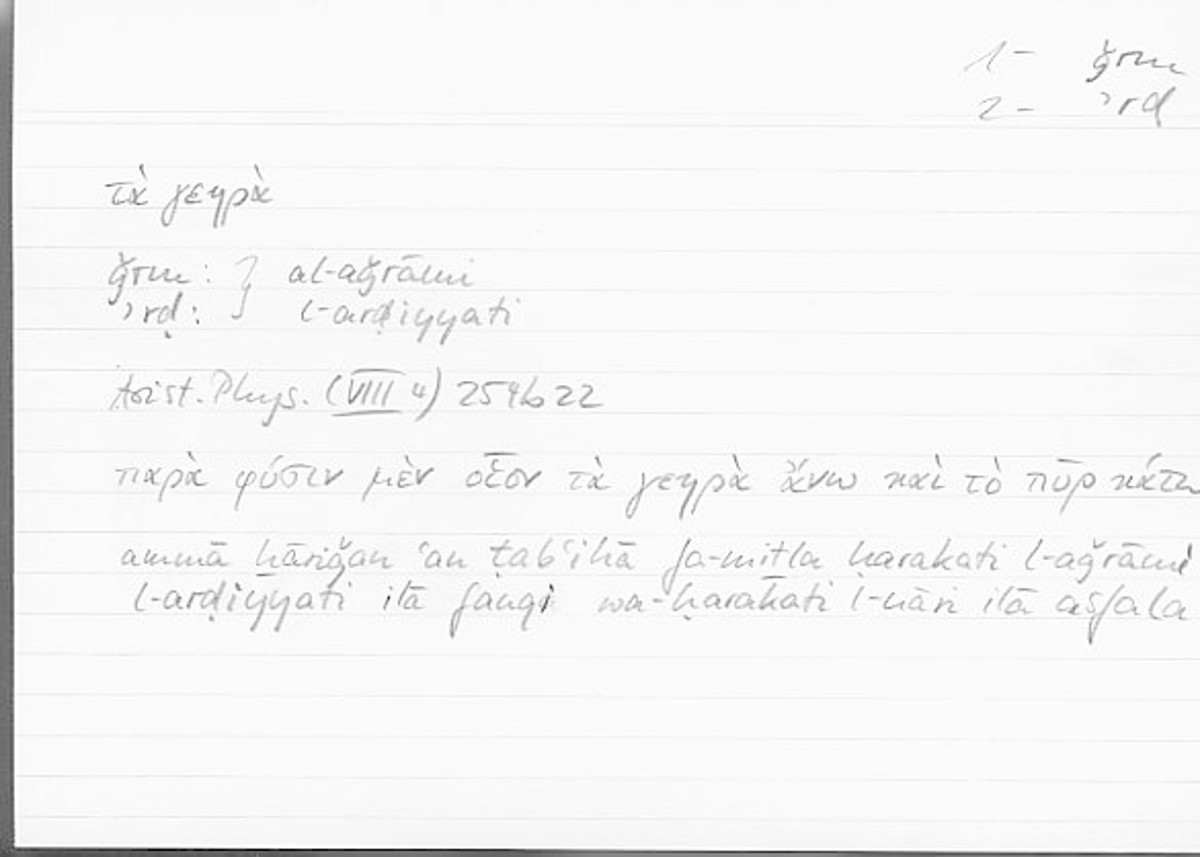 1- ǧrm
2- ʾrḍ
τὰ γεηρὰ
ǧrm : } al-aǧrāmi
ʾrḍ : l-arḍiyyati
Arist. Phys. (VIII 4) 254b22
παρὰ φύσιν μὲν οἷον τὰ γεηρὰ ἄνω καὶ τὸ πῦρ κάτω
ammā ḫāriǧan ʿan ṭabʿihā fa-miṯla ḥarakati l-aǧrāmi
l-arḍiyyati ilā fauqi wa-ḥarakati l-nāri ilā asfala